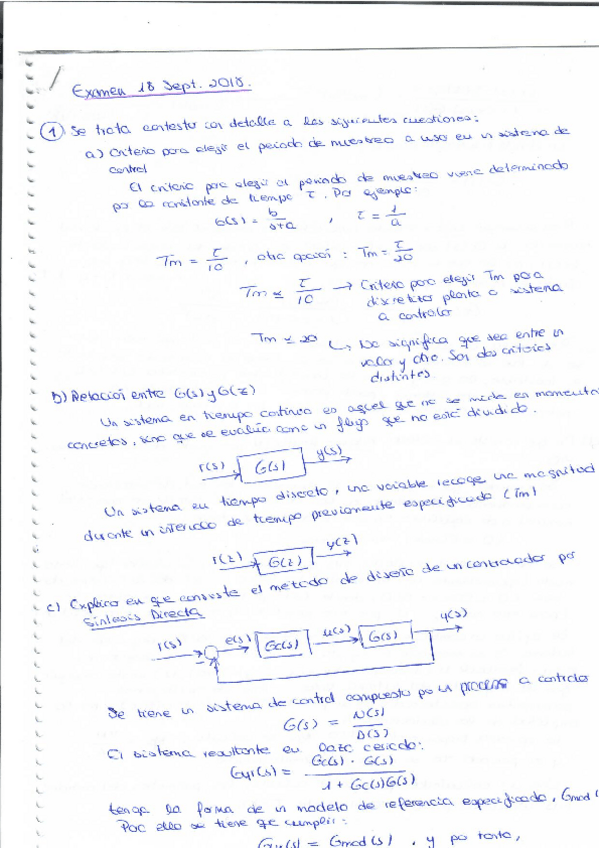 Examen 18 Sept. 2018.
1 Se trata contestar con detalle a las siguientes cuestiones:
a) Criterio para elegir el periodo de muestreo a usar en un sistema de
control
El criterio para elegir el periodo de muestreo viene determinado
por la constante de tiempo τ. Por ejemplo:
G(s) = b/(s+a) , τ = 1/a
Tm = τ/10 , otra opción : Tm = τ/20
Tm ≤ τ/10 → Criterio para elegir Tm para
discretizar planta o sistema
a controlar
Tm ≤ 20 ↳ No significa que sea entre un
valor y otro. Son dos criterios
distintos.
b) Relación entre G(s) y G(z)
Un sistema en tiempo continuo es aquel que no se mide en momentos
concretos, sino que se evalúa como un flujo que no está dividido.
r(s) G(s) y(s)
Un sistema en tiempo discreto, una variable recoge una magnitud
durante un intervalo de tiempo previamente especificado (Tm)
r(z) G(z) y(z)
c) Explica en que consiste el método de diseño de un controlador por
Síntesis Directa
r(s) e(s) Gc(s) u(s) G(s) y(s)
-
Se tiene un sistema de control compuesto por un proceso a controlar
G(s) = N(s)/D(s)
El sistema resultante en lazo cerrado:
Gyr(s) = Gc(s) · G(s) / 1 + Gc(s)G(s)
tenga la forma de un modelo de referencia especificado, Gmod(
Por ello se tiene que cumplir:
Gyr(s) = Gmod(s) , y por tanto,